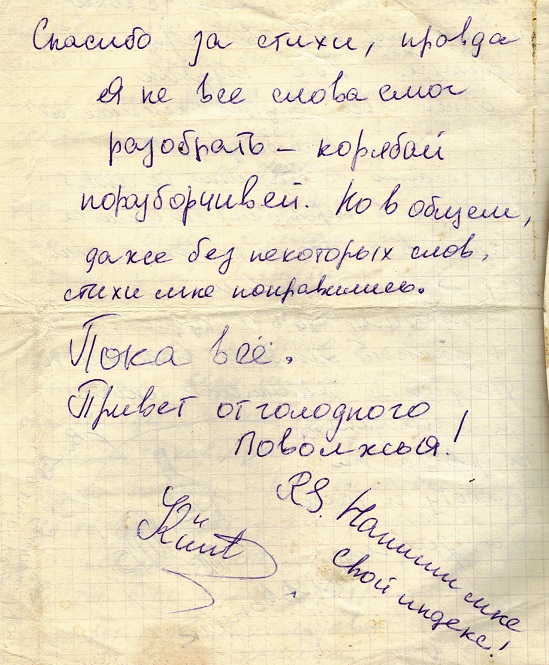 Спасибо за стихи, правда
я не все слова смог
разобрать – корябай
поразборчивей. Но в общем,
даже без некоторых слов,
стихи мне понравились.
Пока всё.
Привет от голодного
Поволжья!
P.S. Напиши мне
свой индекс!